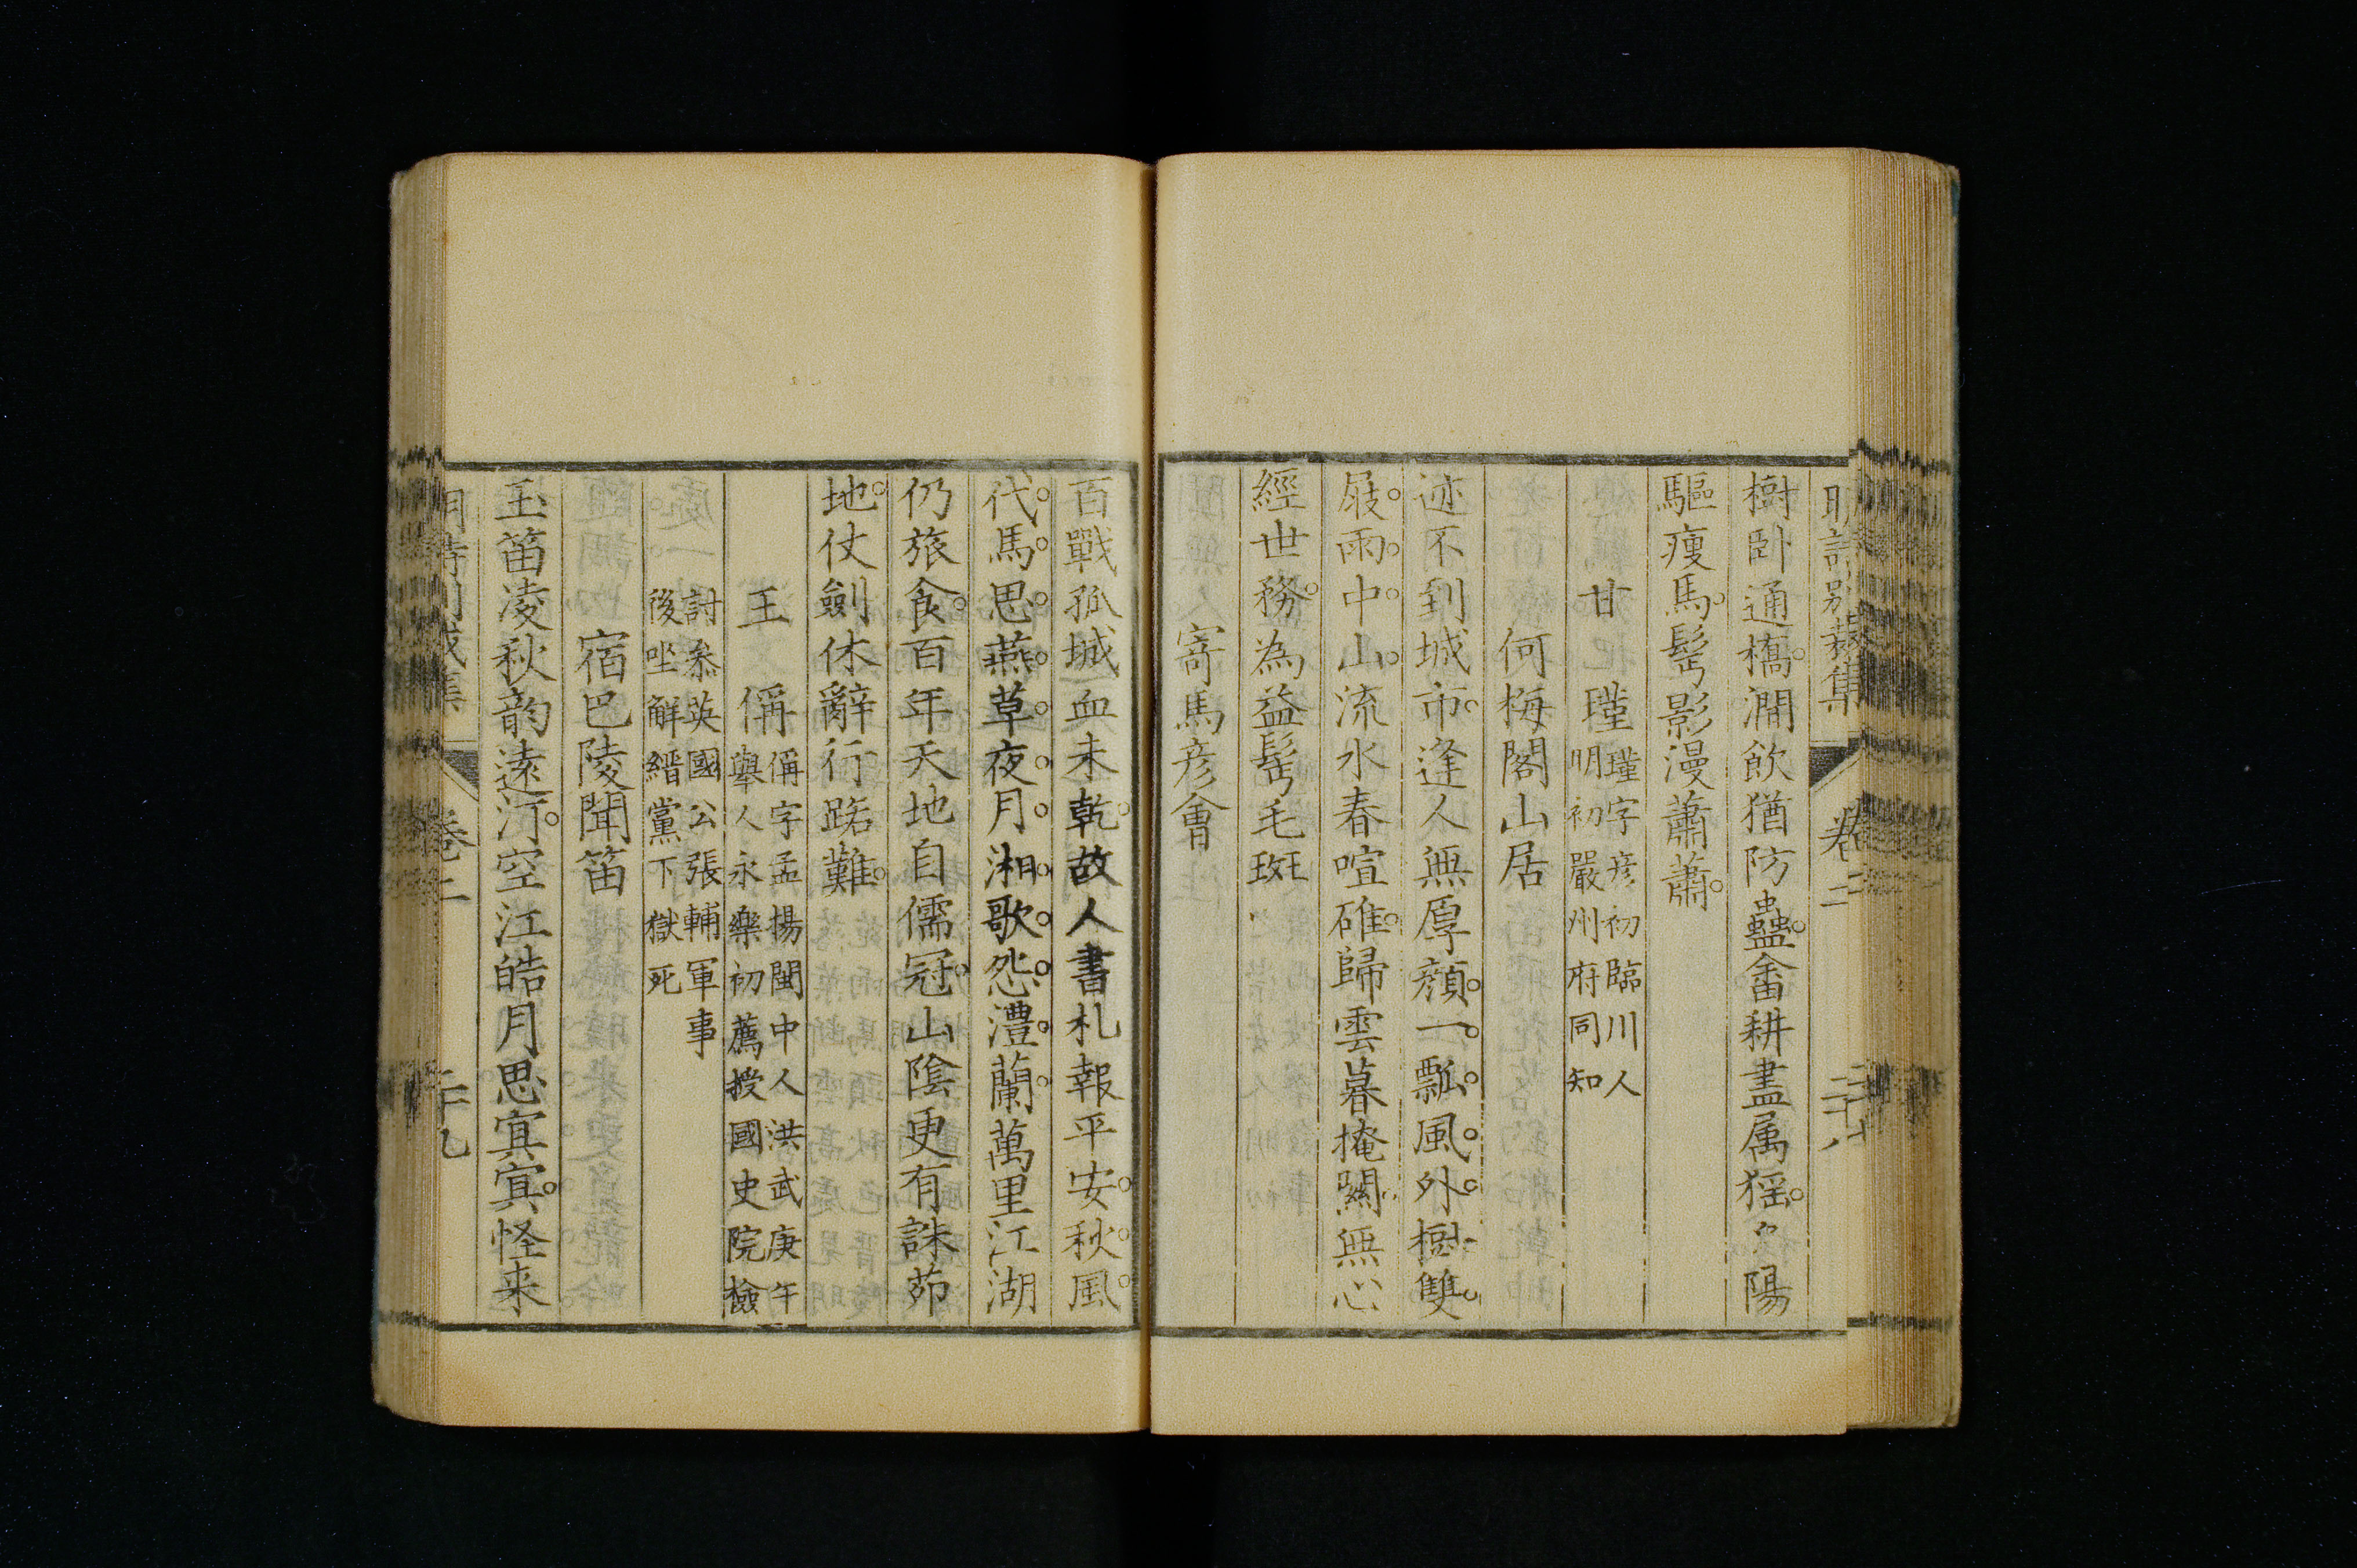 明詩別裁集 卷二 二十八
樹卧通橋澗飲猶防蠱畬耕盡属猺々陽
驅瘦馬髩影漫蕭蕭
甘瑾 瑾字彦初臨川人
明初嚴州府同知
何梅閣山居
迹不到城市逢人無厚顔一瓢風外樹雙
屐雨中山流水春喧碓歸雲暮掩關無心
經世務為益髩毛斑
寄馬彦會
百戰孤城血未乾故人書札報平安秋風
代馬思燕草夜月湘歌怨澧蘭萬里江湖
仍旅食百年天地自儒冠山陰更有誅茆
地仗劍休辭行路難
王偁 偁字孟揚閩中人洪武庚午
舉人永樂初薦授國史院檢
討叅英國公張輔軍事
後坐解縉黨下獄死
宿巴陵聞笛
玉笛凌秋韵遠汀空江皓月思寘寘怪来
明詩別裁集 卷二 二十九